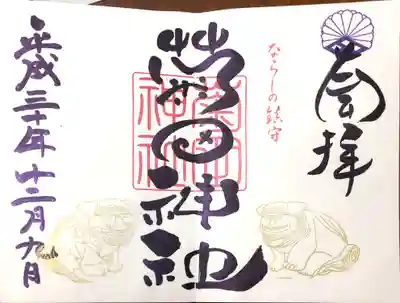 奉拝
ならしの鎮守
菊田神社
菊田神社
平成三十年十二月九日